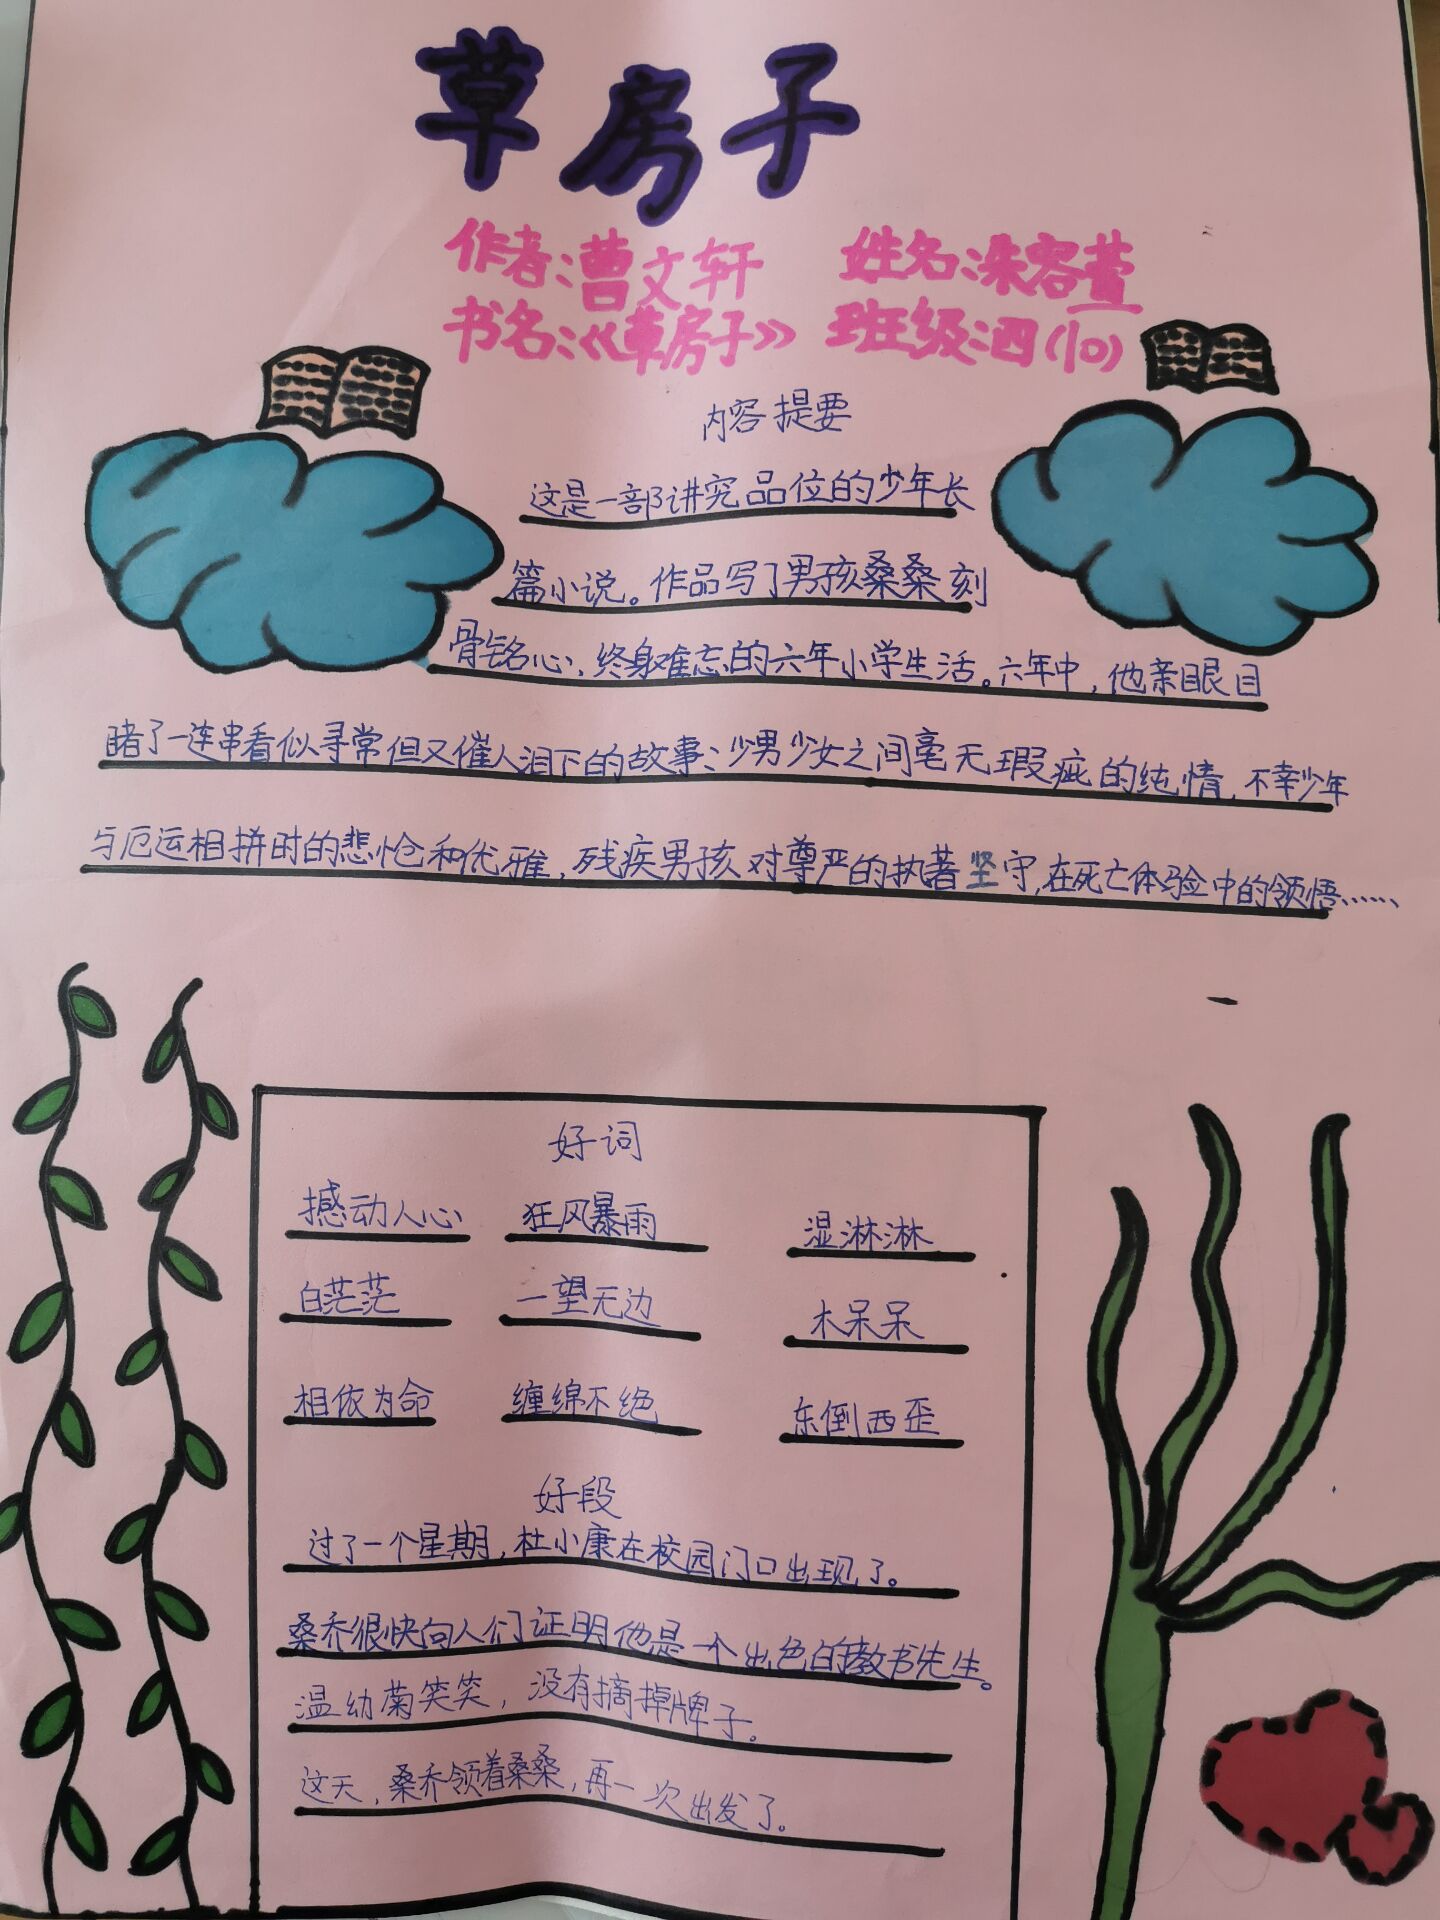 草房子
作者:曹文轩 姓名:朱容萱
书名:《草房子》 班级:四(10)
内容提要
这是一部讲究品位的少年长
篇小说。作品写了男孩桑桑刻
骨铭心,终身难忘的六年小学生活。六年中,他亲眼目
睹了一连串看似寻常但又催人泪下的故事:少男少女之间毫无瑕疵的纯情,不幸少年
与厄运相拼时的悲怆和优雅,残疾男孩对尊严的执著坚守,在死亡体验中的领悟……
好词
撼动人心 狂风暴雨 湿淋淋
白茫茫 一望无边 木呆呆
相依为命 缠绵不绝 东倒西歪
好段
过了一个星期,杜小康在校园门口出现了。
桑乔很快向人们证明他是一个出色的教书先生。
温幼菊笑笑,没有摘掉牌子。
这天,桑乔领着桑桑,再一次出发了。